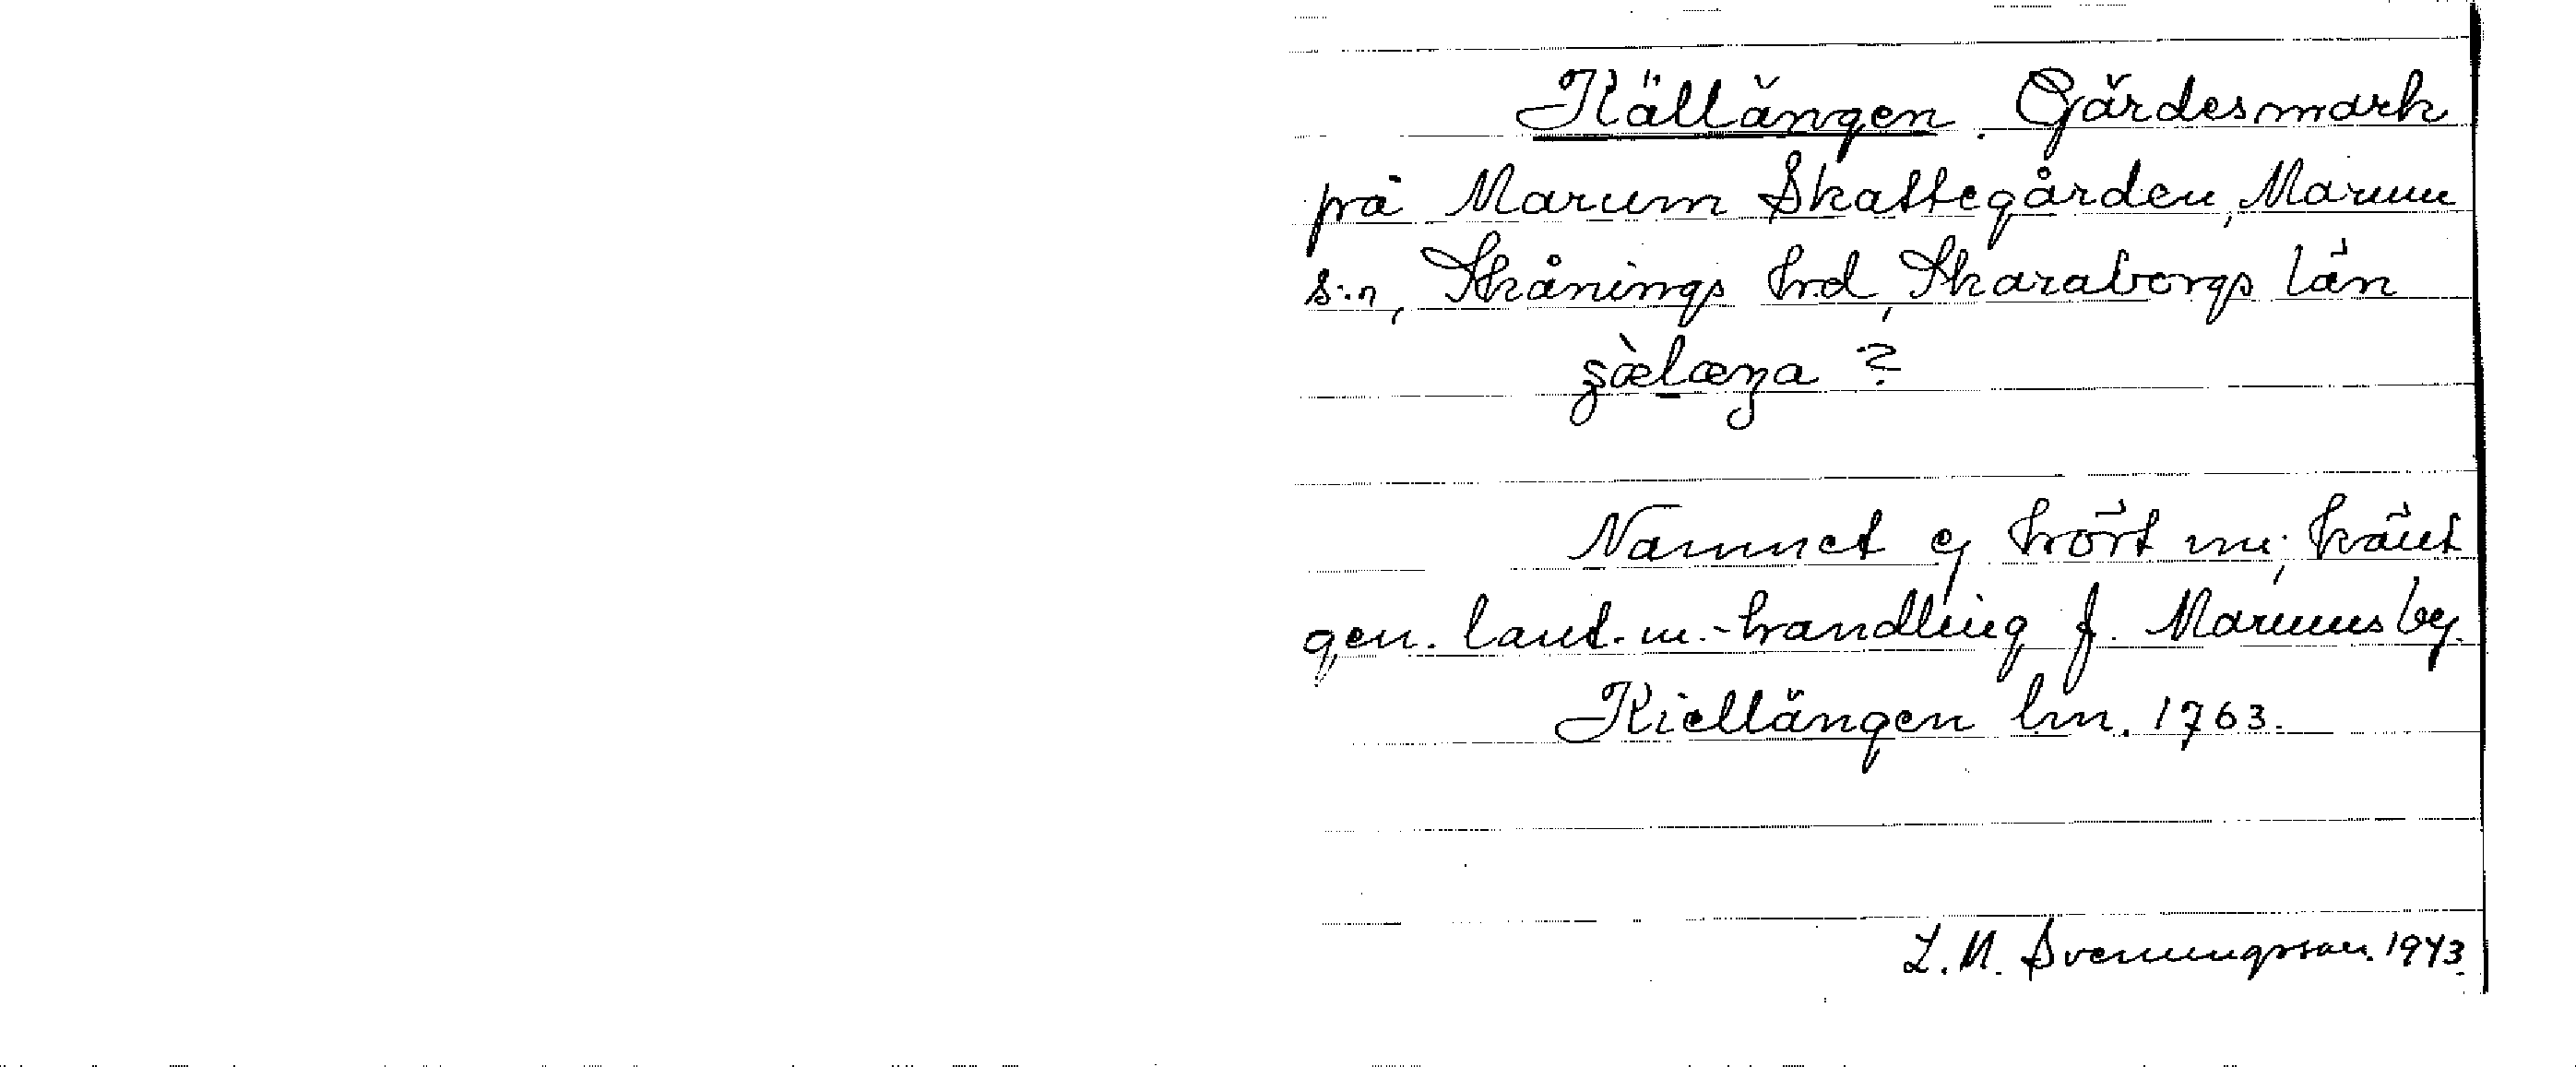 Källängen. Gärdesmark
på Marum Skattegården, Marum
s:n, Skånings hd, Skaraborgs län
s̨æ̀læŋa ?
Namnet ej hört nu; känt
gen. lant.m.-handling f. Marums by.
Kiellängen lm. 1763.
L. N. Svenungsson. 1943.